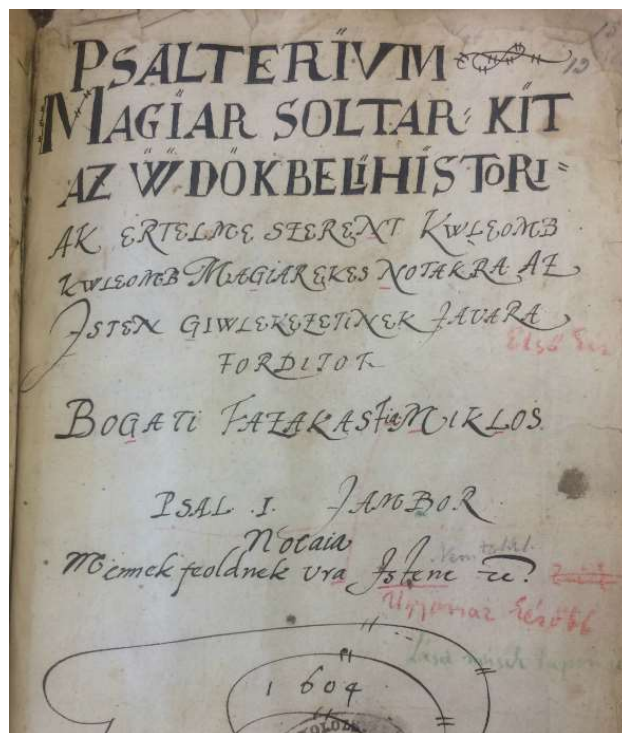 PSALTERIVM
19
MAGIAR SOLTAR: KIT
AZ WDÖKBELI HISTORI=
AK ERTELME SZERENT KWLEOMB
KWLEOMB MAGIAR EKES NOTAKRA AZ
ISTEN GIWLEKEZETINEK JAVARA
FORDITOT
BOGATI FAZAKAS Fia MIKLOS
PSAL I. JAMBOR
Notaia
Mennek feoldnek vra Istene
Ugyanaz később
1604